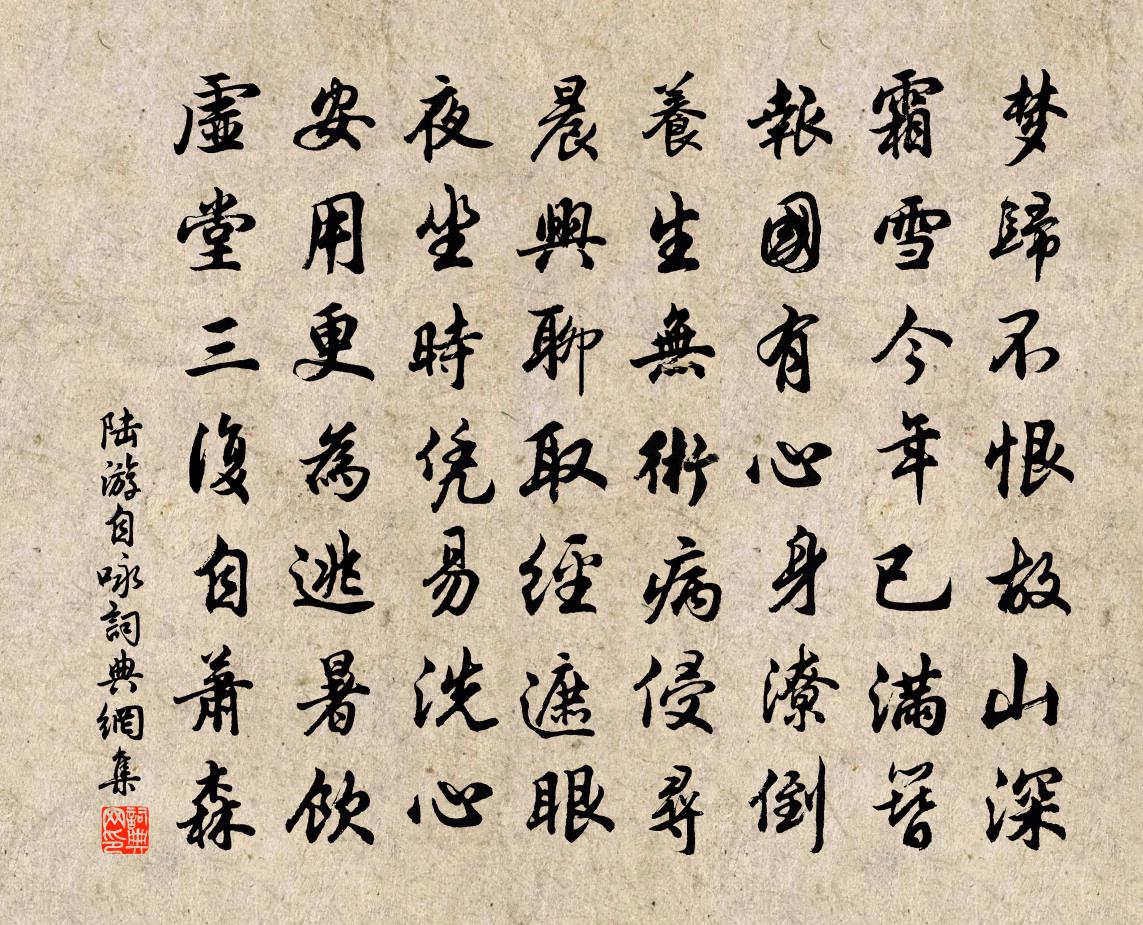 梦歸不恨故山深
霜雪今年已满簪
報國有心身潦倒
養生無術病侵尋
晨興聊取經遮眼
夜坐時凭易洗心
安用更為逃暑飲
虛堂三復自蕭森
陆游自咏詞典網集
詞典网印